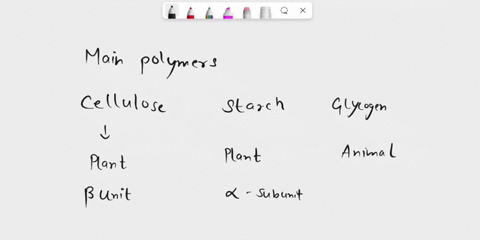 Main polymers
Cellulose Starch Glycogen
↓
Plant Plant Animal
β unit α - subunit